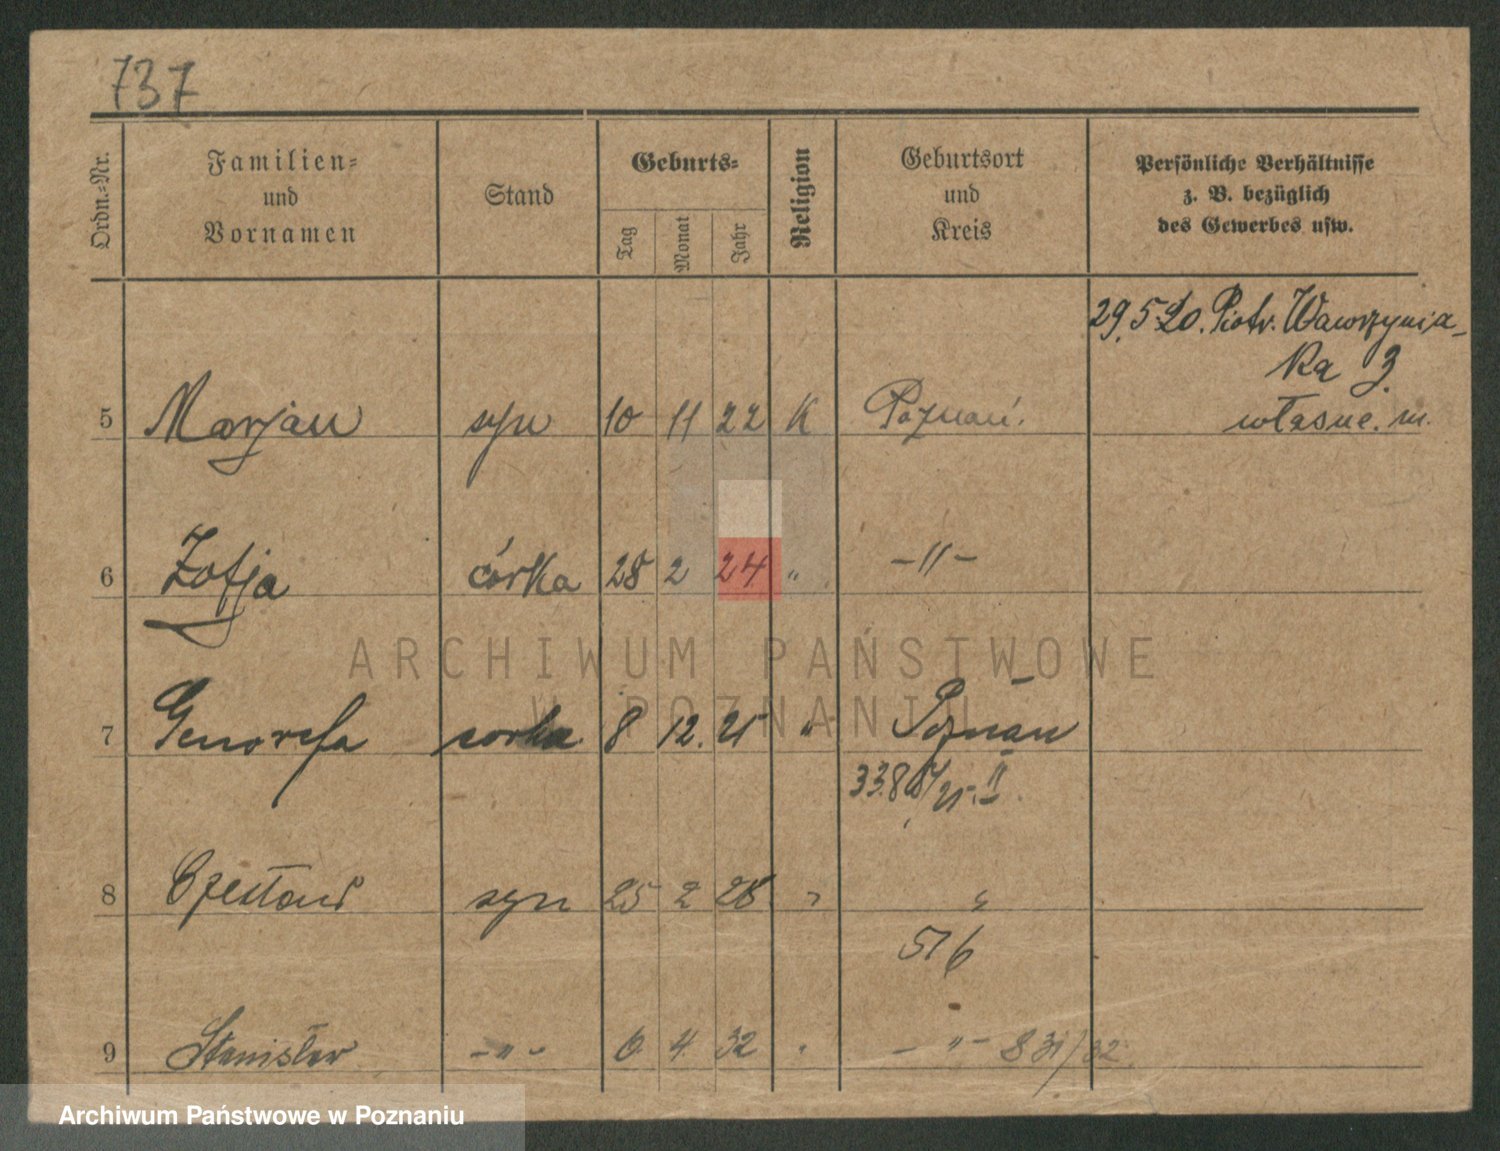 737
Ordn.-Nr.
Familien-
und
Vornamen
Stand
Geburts-
Tag
Monat
Jahr
Religion
Geburtsort
und
Kreis
Persönliche Verhältnisse
z. B. bezüglich
des Gewerbes usw.
29.5.20. Piotr. Wawrzynia-
ka 3.
własne. m.
5 Marjan syn 10 11 22 K Poznań.
6 Zofja córka 28 2 24 " -11-
ARCHIWUM PAŃSTWOWE
W POZNANIU
7 Genowefa corka 8 12. 25 " Poznań
II
8 Czesław syn 25 2 28 " "
516
9 Stanisław -"- 6 4 32 " -"- 831/32.
Archiwum Państwowe w Poznaniu